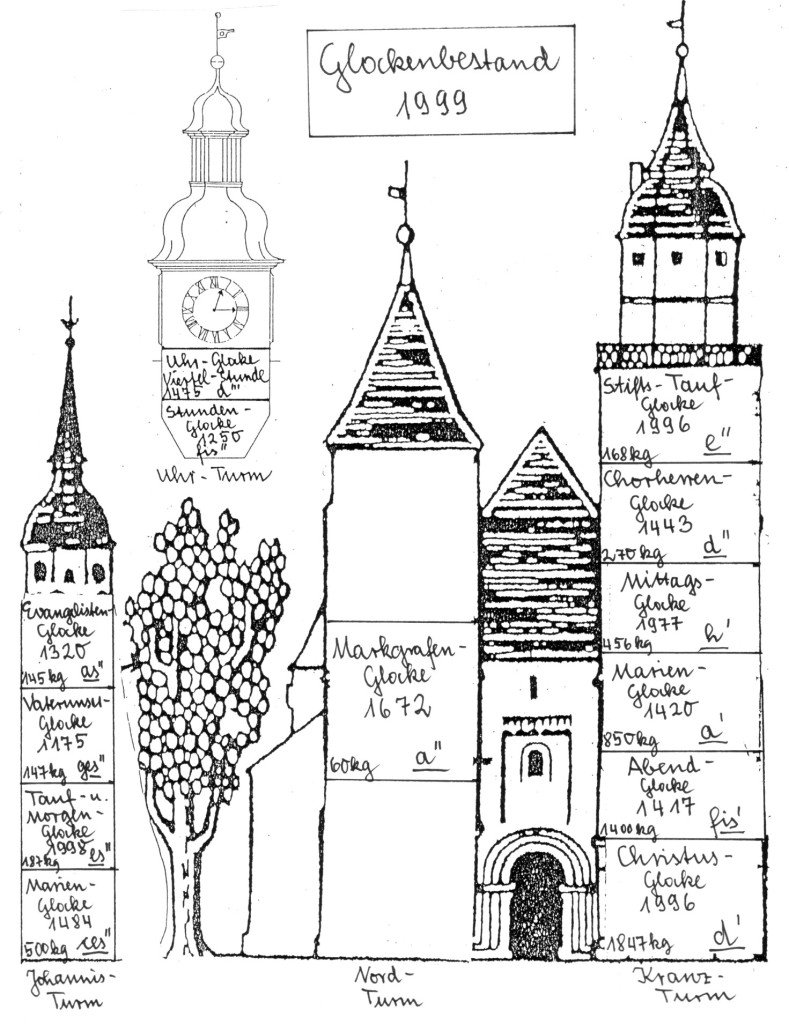 Glockenbestand
1999
Uhr-Glocke
Viertel-Stunde
1475 d'''
Stunden-
Glocke
1250
fis''
Uhr-Turm
Evangelisten-
Glocke
1320
145kg as''
Vaterunser-
Glocke
1175
147kg ges''
Tauf- u.
Morgen-
Glocke
1998
187kg es''
Marien-
Glocke
1484
500kg ces''
Johannis-
Turm
Markgrafen-
Glocke
1672
60kg a''
Nord-
Turm
Stifts-Tauf-
Glocke
1996
168kg e''
Chorherren-
Glocke
1443
270kg d''
Mittags-
Glocke
1977
456kg h'
Marien-
Glocke
1420
850kg a'
Abend-
Glocke
1417
1400kg fis'
Christus-
Glocke
1996
1847kg d'
Kranz-
Turm